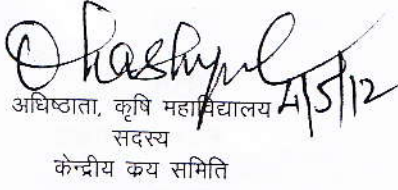 4/5/12
अधिष्ठाता, कृषि महाविद्यालय
सदस्य
केन्द्रीय क्रय समिति